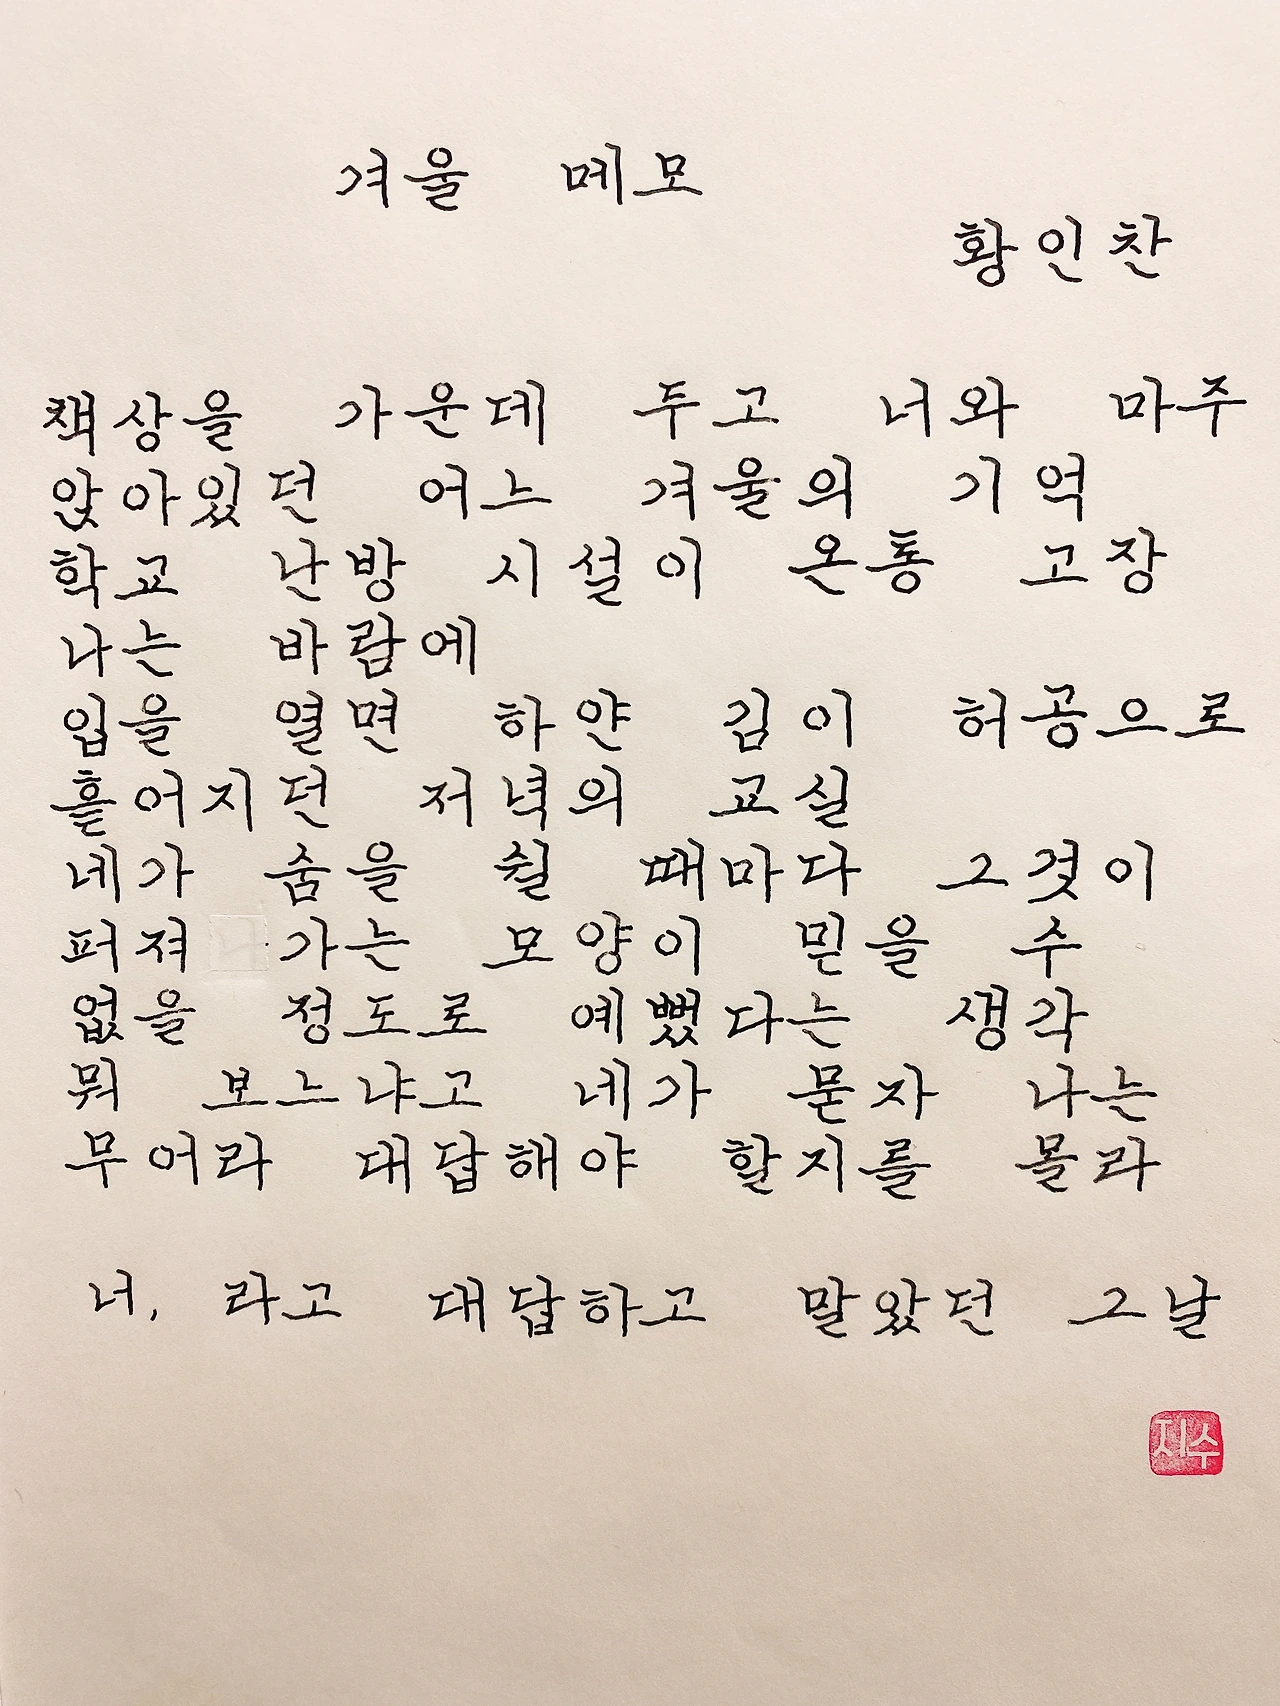 겨울 메모
황인찬
책상을 가운데 두고 너와 마주
앉아있던 어느 겨울의 기억
학교 난방 시설이 온통 고장
나는 바람에
입을 열면 하얀 김이 허공으로
흩어지던 저녁의 교실
네가 숨을 쉴 때마다 그것이
퍼져 가는 모양이 믿을 수
없을 정도로 예뻤다는 생각
뭐 보느냐고 네가 묻자 나는
무어라 대답해야 할지를 몰라
너, 라고 대답하고 말았던 그날
지수